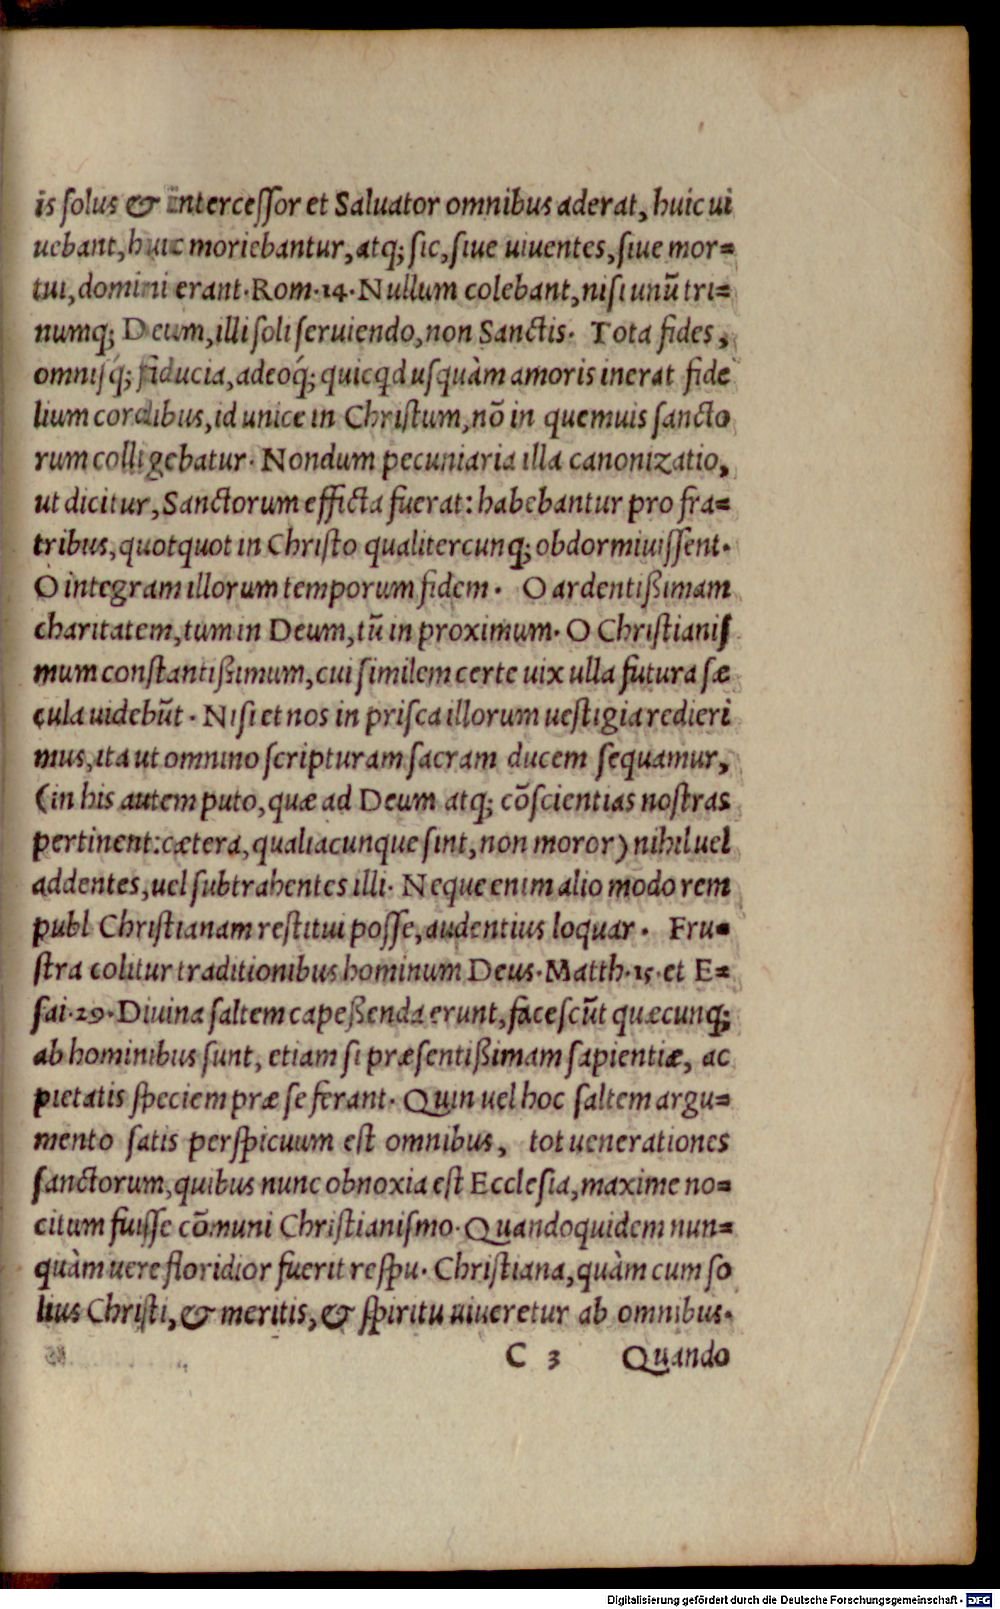 is solus & intercessor et Saluator omnibus aderat, huic ui
uebant, huic moriebantur, atq; sic, siue uiuentes, siue mor=
tui, domini erant. Rom. 14. Nullum colebant, nisi unũ tri=
numq; Deum, illi soli seruiendo, non Sanctis. Tota fides,
omnisq́; fiducia, adeoq́; quicqd usquàm amoris inerat fide
lium cordibus, id unice in Christum, nō in quemuis sancto
rum colligebatur. Nondum pecuniaria illa canonizatio,
ut dicitur, Sanctorum efficta fuerat: habebantur pro fra=
tribus, quotquot in Christo qualitercunq; obdormiuissent.
O integram illorum temporum fidem. O ardentißimam
charitatem, tum in Deum, tũ in proximum. O Christianis
mum constantißimum, cui similem certe uix ulla futura sæ
cula uidebũt. Nisi et nos in prisca illorum uestigia redieri
mus, ita ut omnino scripturam sacram ducem sequamur,
(in his autem puto, quæ ad Deum atq; cōscientias nostras
pertinent: cætera, qualiacunque sint, non moror) nihil uel
addentes, uel subtrahentes illi. Neque enim alio modo rem
publ Christianam restitui posse, audentius loquar. Fru=
stra colitur traditionibus hominum Deus. Matth. 15. et E=
sai. 29. Diuina saltem capeßenda erunt, facescũt quæcunq;
ab hominibus sunt, etiam si præsentißimam sapientiæ, ac
pietatis speciem præ se ferant. Quin uel hoc saltem argu=
mento satis perspicuum est omnibus, tot uenerationes
sanctorum, quibus nunc obnoxia est Ecclesia, maxime no=
citum fuisse cōmuni Christianismo. Quandoquidem nun=
quàm uere floridior fuerit respu. Christiana, quàm cum so
lius Christi, & meritis, & spiritu uiueretur ab omnibus.
C 3 Quando
Digitalisierung gefördert durch die Deutsche Forschungsgemeinschaft - DFG